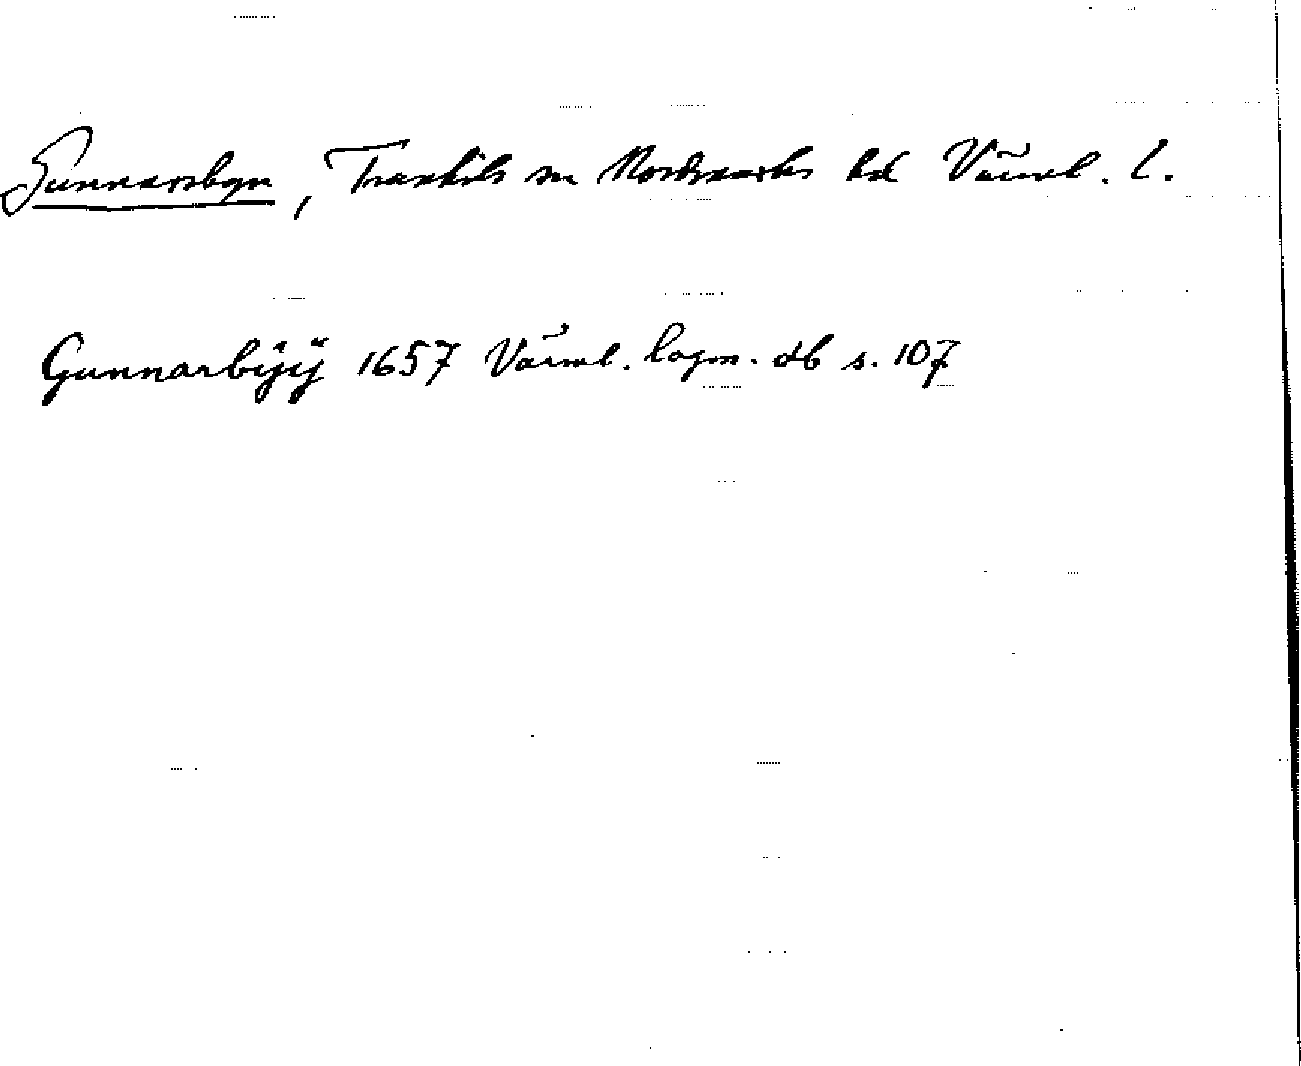 Gunnarsbyn, Trankils sn Nordmarks hd Värml. l.
Gunnarbÿÿ 1657 Värml. lagm. db s. 107